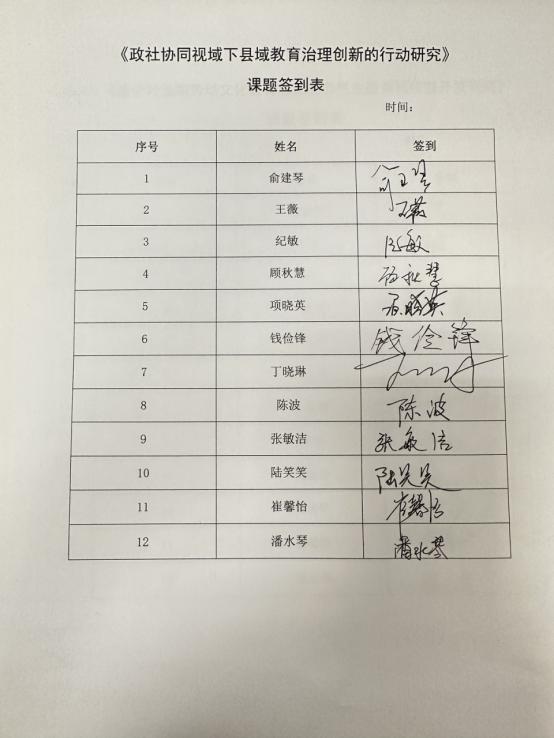 《政社协同视域下县域教育治理创新的行动研究》
课题签到表
时间：
序号 姓名 签到
1 俞建琴
2 王薇 王薇
3 纪敏 纪敏
4 顾秋慧 顾秋慧
5 项晓英 项晓英
6 钱俭锋 钱俭锋
7 丁晓琳
8 陈波 陈波
9 张敏洁 张敏洁
10 陆笑笑 陆笑笑
11 崔馨怡 崔馨怡
12 潘水琴 潘水琴